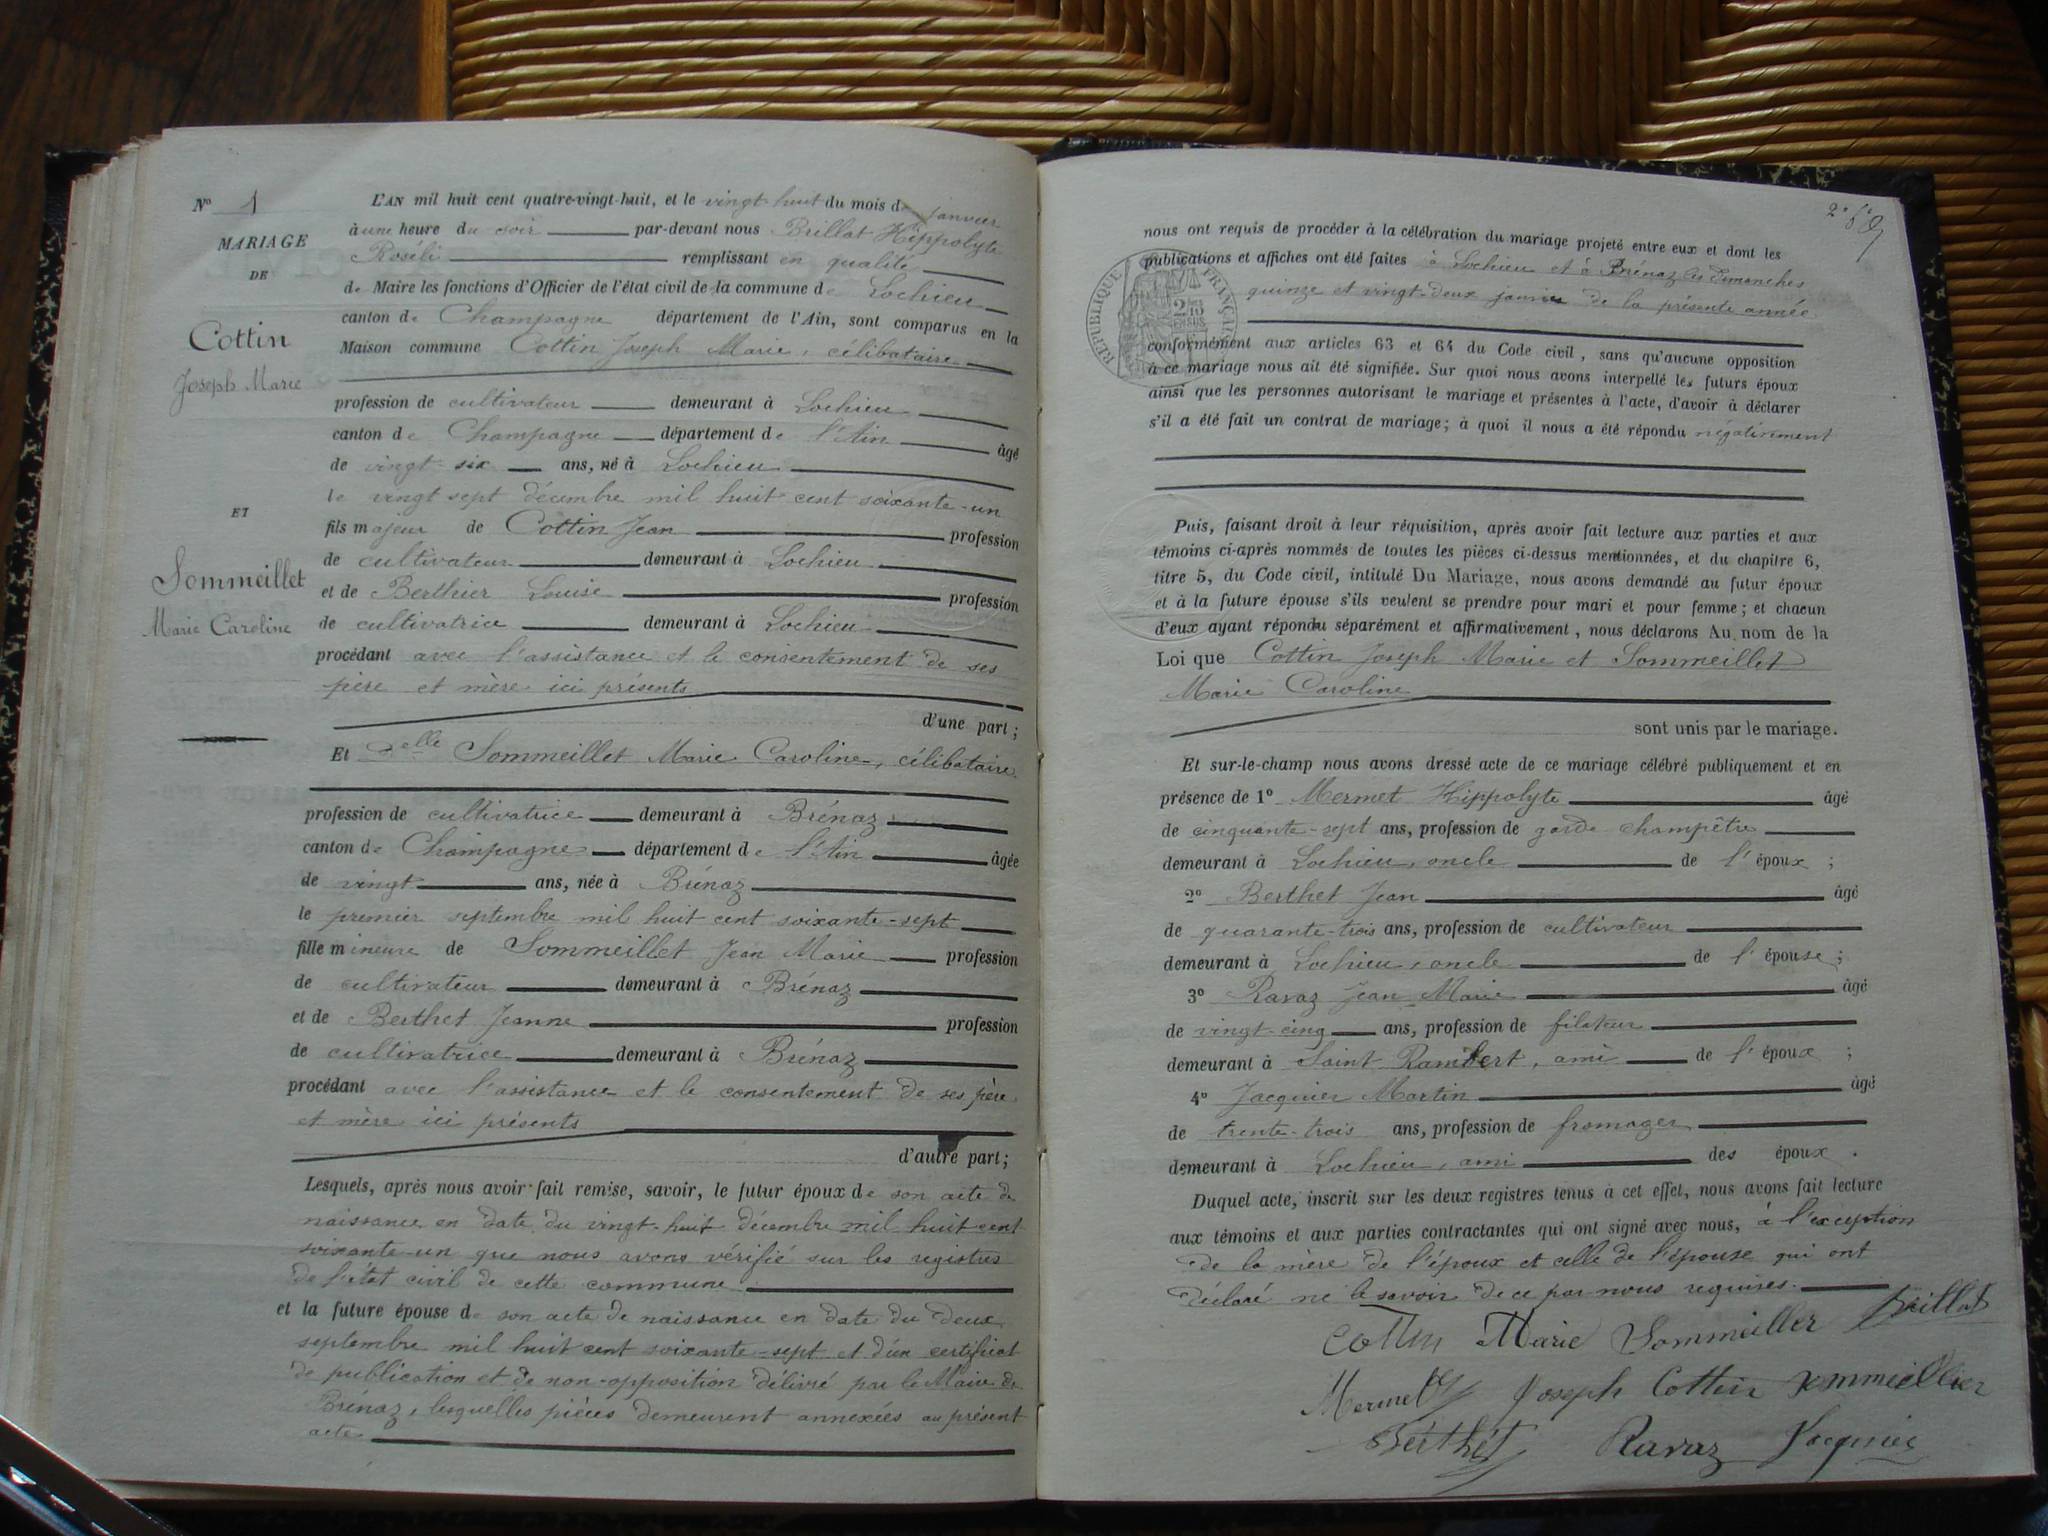 N° 1
MARIAGE
DE
Cottin
Joseph Marie
ET
Sommeillet
Marie Caroline
L'AN mil huit cent quatre-vingt-huit, et le vingt huit du mois de janvier
à une heure du soir par-devant nous Brillat Hippolyte
Roséli remplissant en qualité
de Maire les fonctions d'Officier de l'état civil de la commune de Lochieu
canton de Champagne département de l'Ain, sont comparus en la
Maison commune Cottin Joseph Marie, célibataire
profession de cultivateur demeurant à Lochieu
canton de Champagne département de l'Ain âgé
de vingt-six ans, né à Lochieu
le vingt sept décembre mil huit cent soixante-un
fils majeur de Cottin Jean profession
de cultivateur demeurant à Lochieu
et de Berthier Louise profession
de cultivatrice demeurant à Lochieu
procédant avec l'assistance et le consentement de ses
père et mère ici présents
d'une part;
Et Delle Sommeillet Marie Caroline, célibataire
profession de cultivatrice demeurant à Brénaz
canton de Champagne département de l'Ain âgée
de vingt ans, née à Brénaz
le premier septembre mil huit cent soixante-sept
fille mineure de Sommeillet Jean Marie profession
de cultivateur demeurant à Brénaz
et de Berthet Jeanne profession
de cultivatrice demeurant à Brénaz
procédant avec l'assistance et le consentement de ses père
et mère ici présents
d'autre part;
Lesquels, après nous avoir fait remise, savoir, le futur époux de son acte de
naissance en date du vingt-huit décembre mil huit cent
soixante-un que nous avons vérifié sur les registres
de l'état civil de cette commune
et la future épouse de son acte de naissance en date du deux
septembre mil huit cent soixante-sept et d'un certificat
de publication et de non-opposition délivré par le Maire de
Brénaz, lesquelles pièces demeurent annexées au présent
acte
nous ont requis de procéder à la célébration du mariage projeté entre eux et dont les
publications et affiches ont été faites à Lochieu et à Brénaz les dimanches
quinze et vingt-deux janvier de la présente année
RÉPUBLIQUE FRANÇAISE
conformément aux articles 63 et 64 du Code civil, sans qu'aucune opposition
à ce mariage nous ait été signifiée. Sur quoi nous avons interpellé les futurs époux
ainsi que les personnes autorisant le mariage et présentes à l'acte, d'avoir à déclarer
s'il a été fait un contrat de mariage; à quoi il nous a été répondu négativement
Puis, faisant droit à leur réquisition, après avoir fait lecture aux parties et aux
témoins ci-après nommés de toutes les pièces ci-dessus mentionnées, et du chapitre 6,
titre 5, du Code civil, intitulé Du Mariage, nous avons demandé au futur époux
et à la future épouse s'ils veulent se prendre pour mari et pour femme; et chacun
d'eux ayant répondu séparément et affirmativement, nous déclarons Au nom de la
Loi que Cottin Joseph Marie et Sommeillet
Marie Caroline
sont unis par le mariage.
Et sur-le-champ nous avons dressé acte de ce mariage célébré publiquement et en
présence de 1° Mermet Hippolyte âgé
de cinquante-sept ans, profession de garde champêtre
demeurant à Lochieu, oncle de l'époux;
2° Berthet Jean âgé
de quarante-trois ans, profession de cultivateur
demeurant à Lochieu, oncle de l'épouse;
3° Ravaz Jean Marie âgé
de vingt-cinq ans, profession de filateur
demeurant à Saint Rambert, ami de l'époux;
4° Jacquier Martin âgé
de trente-trois ans, profession de fromager
demeurant à Lochieu, ami des époux.
Duquel acte, inscrit sur les deux registres tenus à cet effet, nous avons fait lecture
aux témoins et aux parties contractantes qui ont signé avec nous, à l'exception
de la mère de l'époux et celle de l'épouse qui ont
déclaré ne le savoir de ce par nous requises.
Cottin Marie Sommeiller Brillat
Mermet Joseph Cottin Sommeillier
Berthet Ravaz Jacquier